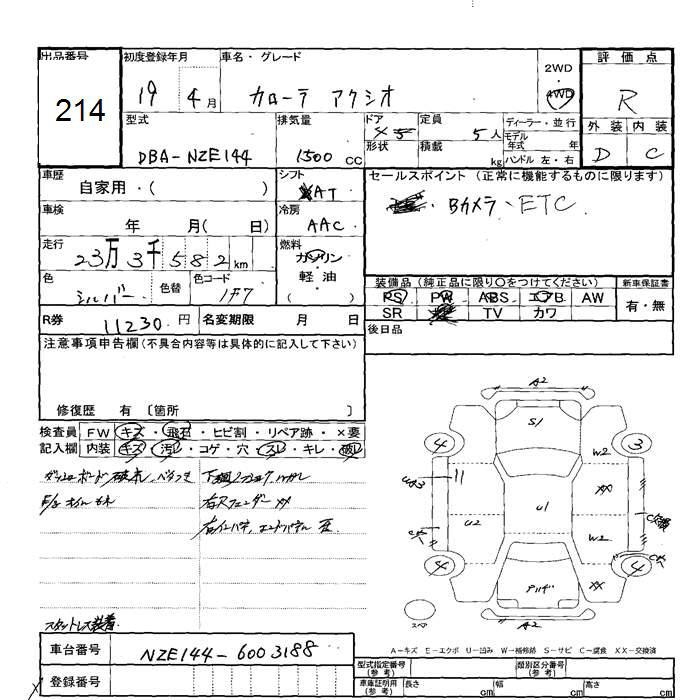 出品番号 初度登録年月 車名・グレード 2WD・4WD 評価点
214
19 4月 カローラ アクシオ R
型式 排気量 ドア 形状 定員 積載 ディーラー・並行 モデル年式 年 ハンドル 左・右 外装 内装
DBA-NZE144 1500cc 4 5 5人 kg D C
車歴 自家用・( ) シフト AT セールスポイント(正常に機能するものに限ります)
車検 年 月( 日) 冷房 AAC Bカメラ、ETC
走行 23万3千582km 燃料 ガソリン・軽油 ( )
色 シルバー 色替 色コード 1F7
装備品(純正品に限り○をつけてください) 新車保証書
PS PW ABS エアB AW 有・無
SR TV カワ
R券 11230円 名変期限 月 日 後日品
注意事項申告欄(不具合内容等は具体的に記入して下さい)
修復歴 有 〔箇所 〕
検査員 FW キズ・飛石・ヒビ割・リペア跡・×要
記入欄 内装 キズ・汚レ・コゲ・穴・スレ・キレ・破レ
ダッシュボード破れ、ベタつき
E/g オイルもれ
下廻り
右Fフェンダー XX
右インパネ、エンドパネル 歪
スタットレス装着
A2
S1
4 3
W2
UA3 XX
U2 U1 C穴
C穴 W2
C穴
4 4
XX
A2
スペア
A-キズ E-エクボ U-凹み W-補修跡 S-サビ C-腐食 XX-交換済
車台番号 NZE144-6003188
型式指定番号(参考) 類別区分番号(参考)
登録番号 車庫証明用(参考) 長さ cm 幅 cm 高さ cm